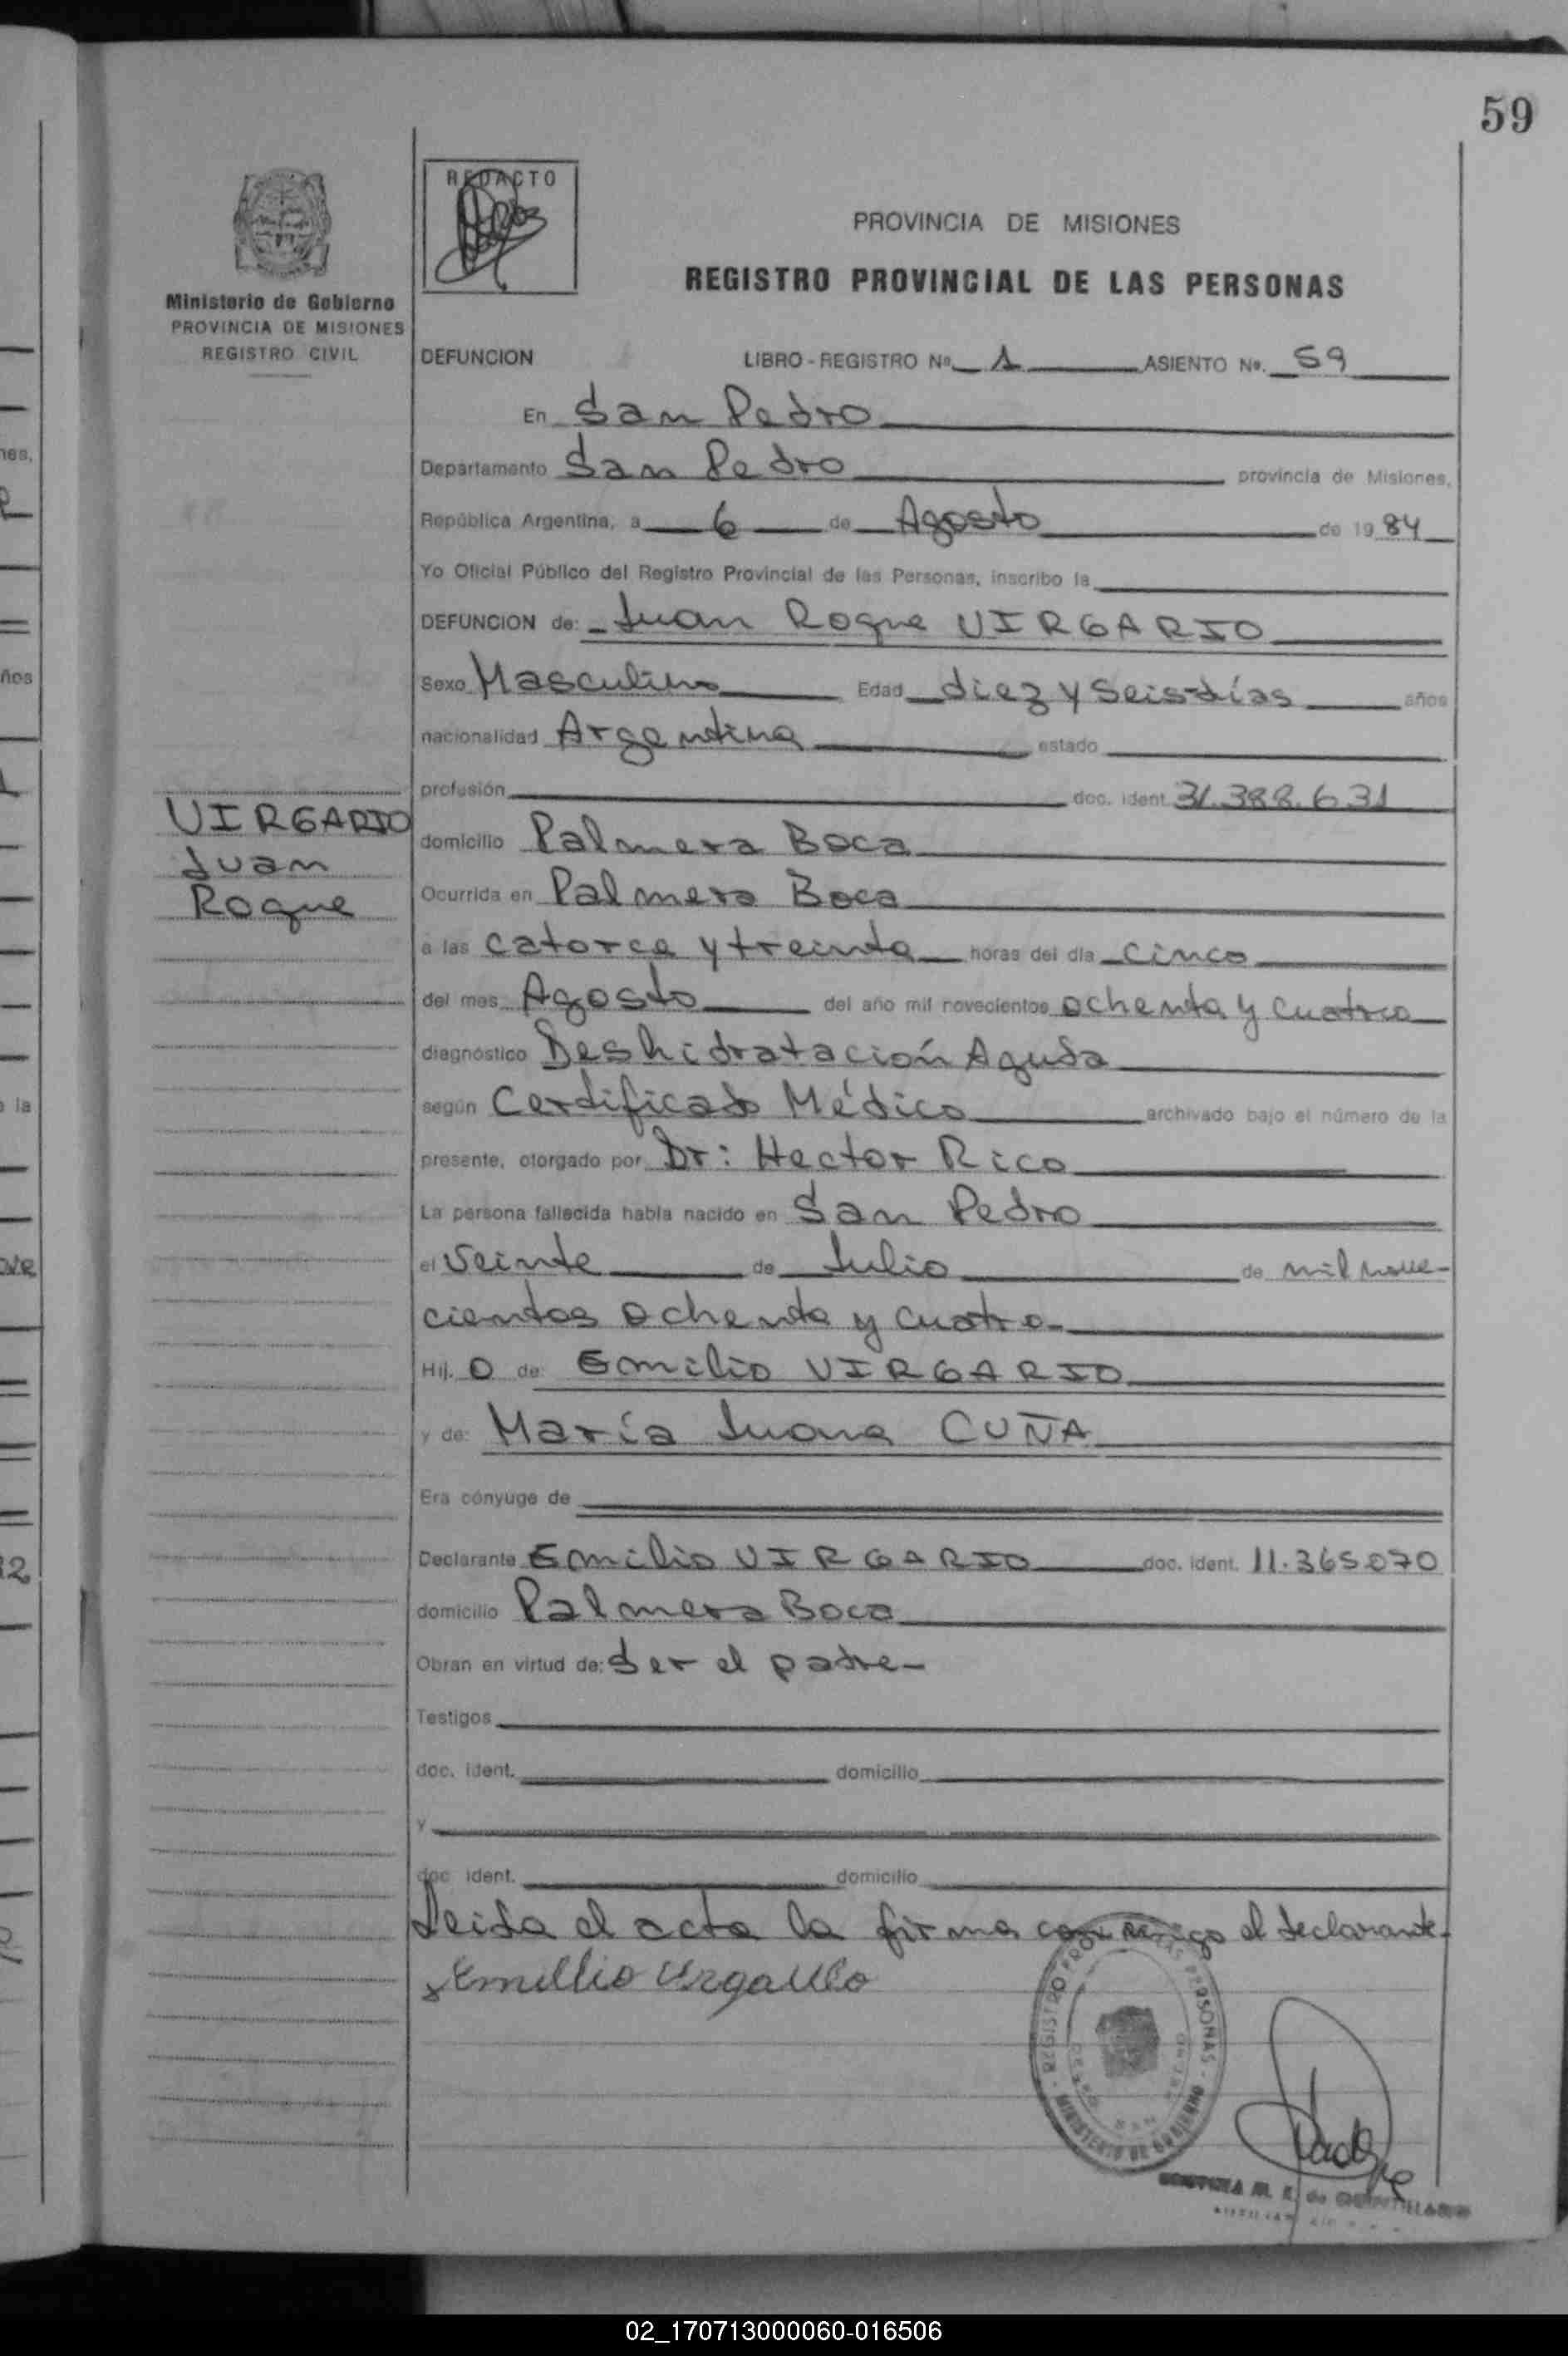 59
REDACTO
PROVINCIA DE MISIONES
REGISTRO PROVINCIAL DE LAS PERSONAS
Ministerio de Gobierno
PROVINCIA DE MISIONES
REGISTRO CIVIL
DEFUNCION LIBRO - REGISTRO Nº 1 ASIENTO Nº. 59
En San Pedro
Departamento San Pedro provincia de Misiones,
República Argentina, a 6 de Agosto de 1984
Yo Oficial Público del Registro Provincial de las Personas, inscribo la
DEFUNCION de: Juan Roque VIRGARIO
Sexo Masculino Edad diez y seis días años
nacionalidad Argentina estado
profusión doc. ident. 31.388.631
VIRGARIO
Juan
Roque
domicilio Palmera Boca
Ocurrida en Palmera Boca
a las catorce y treinta horas del día cinco
del mes Agosto del año mil novecientos ochenta y cuatro
diagnóstico Deshidratación Aguda
según Certificado Médico archivado bajo el número de la
presente, otorgado por Dr: Hector Rico
La persona fallecida había nacido en San Pedro
el veinte de Julio de mil nove-
cientos ochenta y cuatro
Hij. O de: Emilio VIRGARIO
y de: María Juana CUÑA
Era cónyuge de
Declarante Emilio VIRGARIO doc. ident. 11.365.070
domicilio Palmera Boca
Obran en virtud de: Ser el padre-
Testigos
doc. ident. domicilio
y
doc ident. domicilio
Leida el acta la firma conmigo el declarante-
REGISTRO PROV LAS PERSONAS - MINISTERIO DE GOBIERNO
02_170713000060-016506